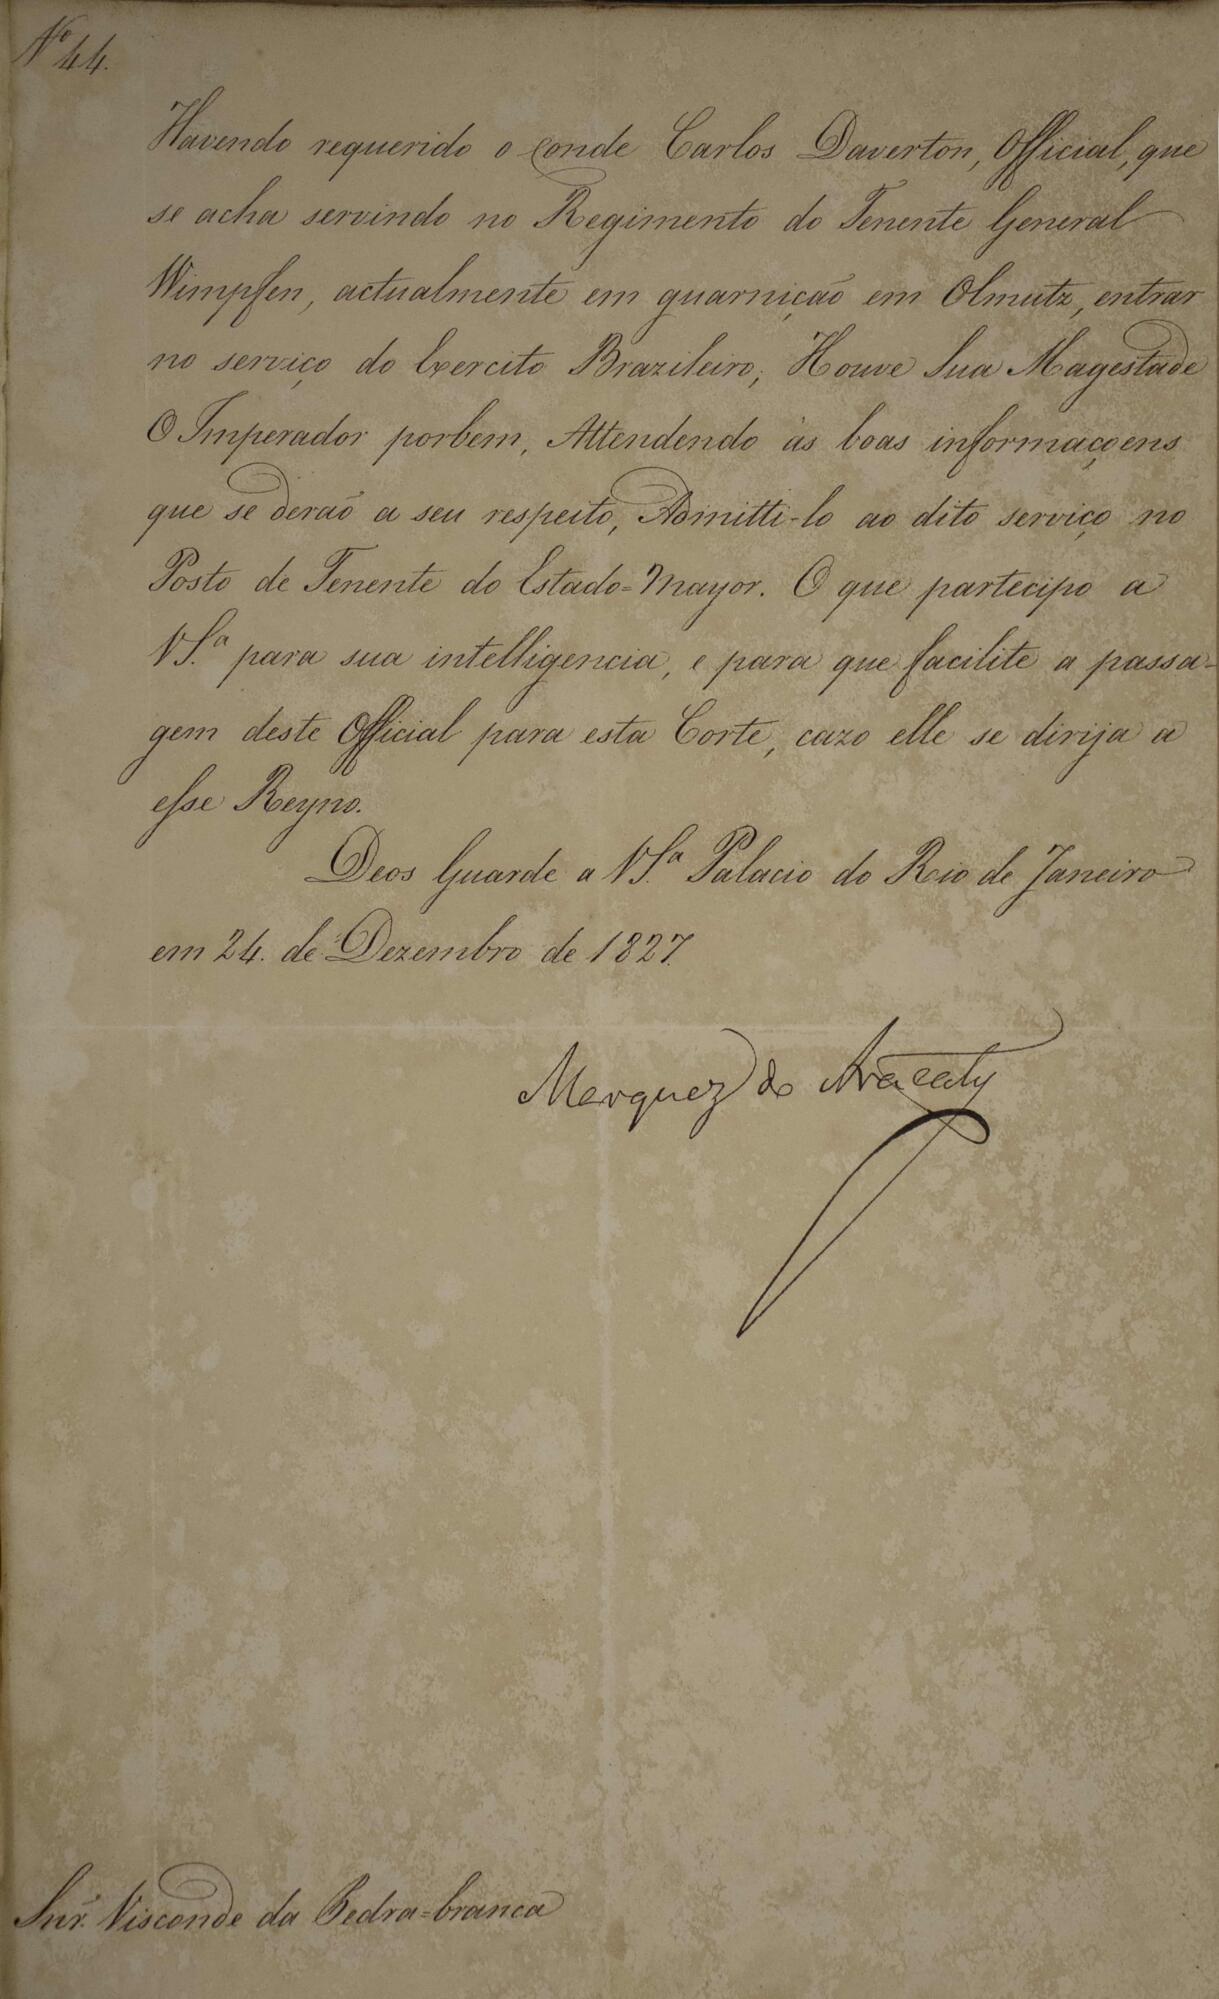 Nº 44.
Havendo requerido o Conde Carlos Daverton, Official, que
se acha servindo no Regimento do Tenente General
Wimpfen, actualmente em guarnição em Olmutz, entrar
no serviço do Exercito Brazileiro; Houve Sua Magestade
O Imperador porbem, Attendendo ás boas informaçoens
que se derão a seu respeito, Admitti-lo ao dito serviço no
Posto de Tenente do Estado=Mayor. O que partecipo a
VS.ª para sua intelligencia, e para que facilite a passa-
gem deste Official para esta Corte, cazo elle se dirija a
esse Reyno.
Deos Guarde a VS.ª Palacio do Rio de Janeiro
em 24. de Dezembro de 1827.
Marquez de Aracaty
Snr. Visconde da Pedra=branca